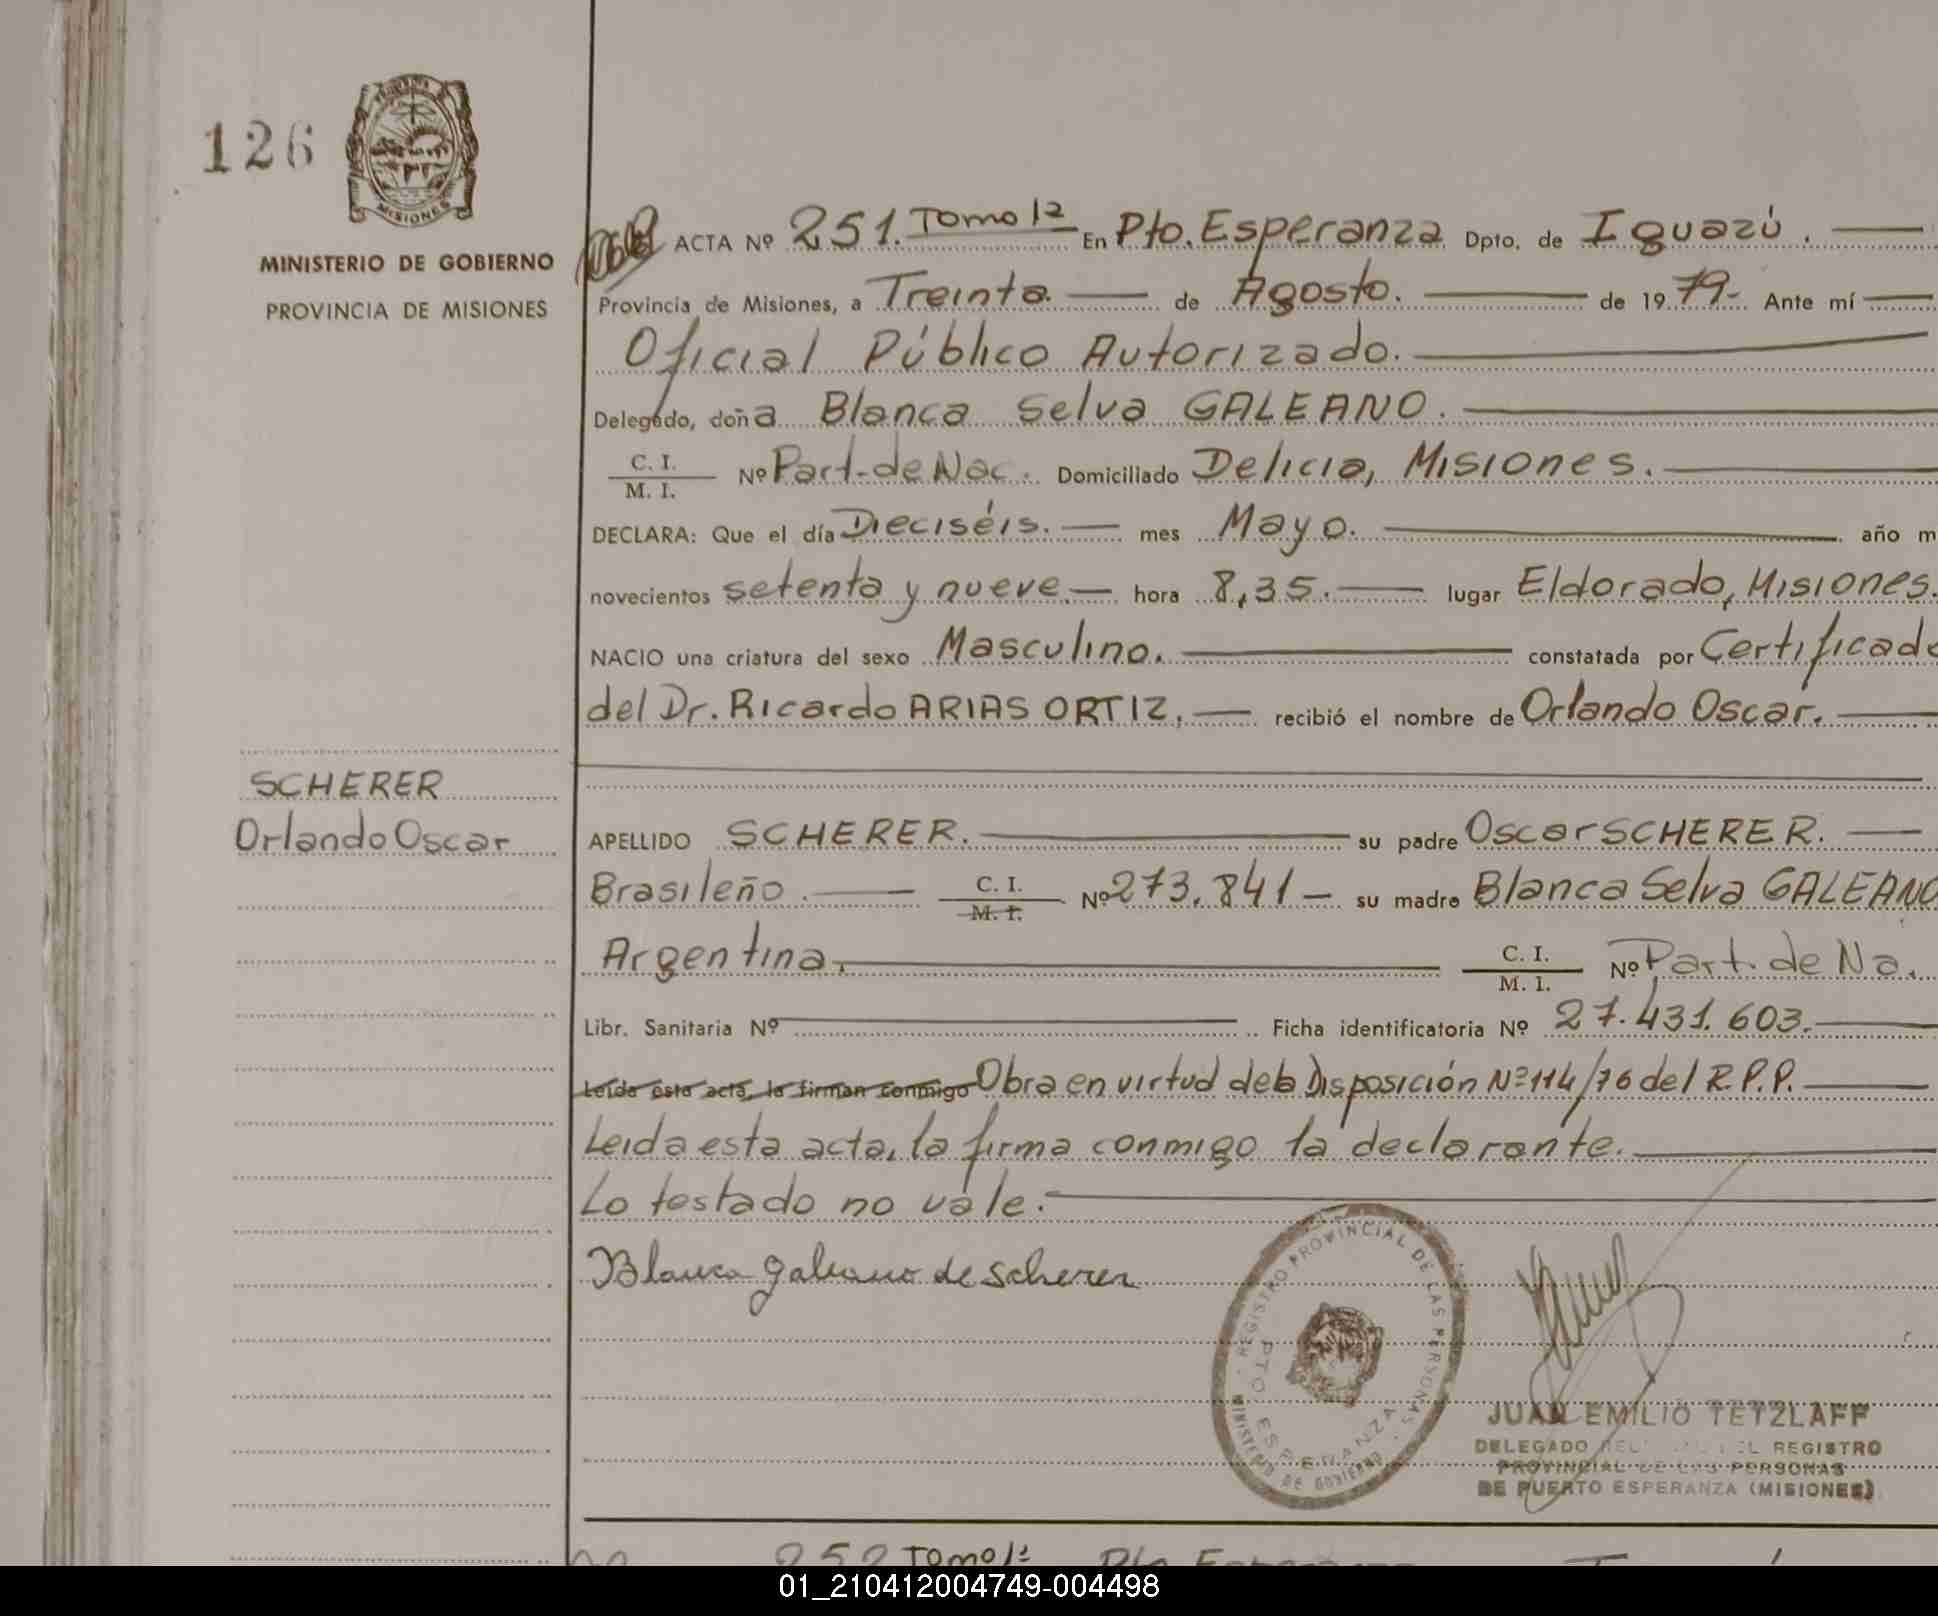 126
MISIONES
MINISTERIO DE GOBIERNO
PROVINCIA DE MISIONES
ACTA Nº 251. Tomo 1º En Pto. Esperanza Dpto. de Iguazú.
Provincia de Misiones, a Treinta. de Agosto. de 1979.- Ante mí
Oficial Público Autorizado.
Delegado, doña Blanca Selva GALEANO.
C. I. / M. I. Nº Part. de Nac. Domiciliado Delicia, Misiones.
DECLARA: Que el día Dieciséis. mes Mayo. año m
novecientos setenta y nueve hora 8,35. lugar Eldorado, Misiones.
NACIO una criatura del sexo Masculino. constatada por Certificado
del Dr. Ricardo ARIAS ORTIZ, recibió el nombre de Orlando Oscar.
SCHERER
Orlando Oscar
APELLIDO SCHERER. su padre Oscar SCHERER.
Brasileño. C. I. / M. I. Nº 273.841 su madre Blanca Selva GALEANO
Argentina. C. I. / M. I. Nº Part. de Na.
Libr. Sanitaria Nº Ficha identificatoria Nº 27.431.603.
Leída esta acta, la firman conmigo Obra en virtud de la Disposición Nº 114/76 del R.P.P.
Leida esta acta, la firma conmigo la declarante.
Lo testado no vale.
Blanca galeano de scherer
REGISTRO PROVINCIAL DE LAS PERSONAS
PTO ESPERANZA
MINISTERIO DE GOBIERNO
JUAN EMILIO TETZLAFF
DELEGADO DEL REGISTRO
PROVINCIAL DE LAS PERSONAS
DE PUERTO ESPERANZA (MISIONES)
252 Tomo 1º Pto Esperanza
01_210412004749-004498